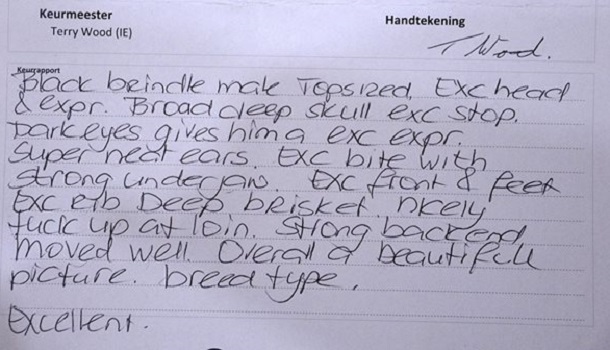 Keurmeester
Handtekening
Terry Wood (IE)
T Wood.
Keurrapport
Black brindle male Topsized. Exc head
& expr. Broad deep skull exc stop.
Dark eyes gives him a exc expr.
Super neat ears. Exc bite with
strong underjaw. Exc front & feet
Exc rib Deep brisket. nicely
tuck up at loin. Strong backend
moved well. Overall a beautifull
picture. breed type.
Excellent.